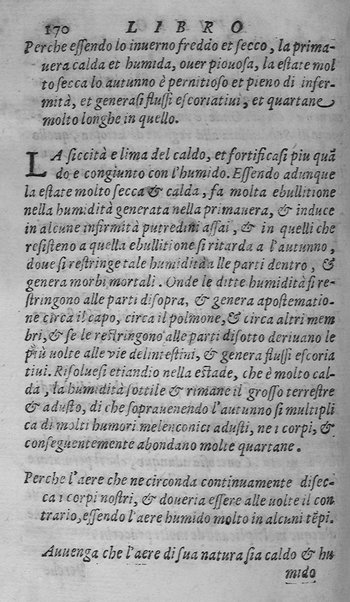 170 LIBRO
Perche essendo lo inverno freddo et secco, la prima-
uera calda et humida, ouer piouosa, la estate mol
to secca lo autunno è pernitioso et pieno di infer-
mità, et generasi flussi escoriatiui, et quartane
molto longhe in quello.
LA siccità e lima del caldo, et fortificasi piu quã
do e congiunto con l'humido. Essendo adunque
la estate molto secca & calda, fa molta ebullitione
nella humidità generata nella primauera, & induce
in alcune infirmità putredini assai, & in quelli che
resisteno a quella ebullitione si ritarda a l'autunno,
doue si restringe tale humidità alle parti dentro, &
genera morbi mortali. Onde le ditte humidità si re-
stringono alle parti disopra, & genera apostematio-
ne circa il capo, circa il polmone, & circa altri mem
bri, & se le restringono alle parti disotto deriuano le
più uolte alle vie delintestini, & genera flussi escoria
tiui. Risoluesi etiandio nella estade, che è molto cal-
da, la humidità sottile & rimane il grosso terrestre
& adusto, di che soprauenendo l'autunno si multipli
ca di molti humori melenconici adusti, ne i corpi, &
conseguentemente abondano molte quartane.
Perche l'aere che ne circonda continuamente disec-
ca i corpi nostri, & doueria essere alle uolte il con
trario, essendo l'aere humido molto in alcuni tẽpi.
Auuenga che l'aere di sua natura sia caldo & hu
mido